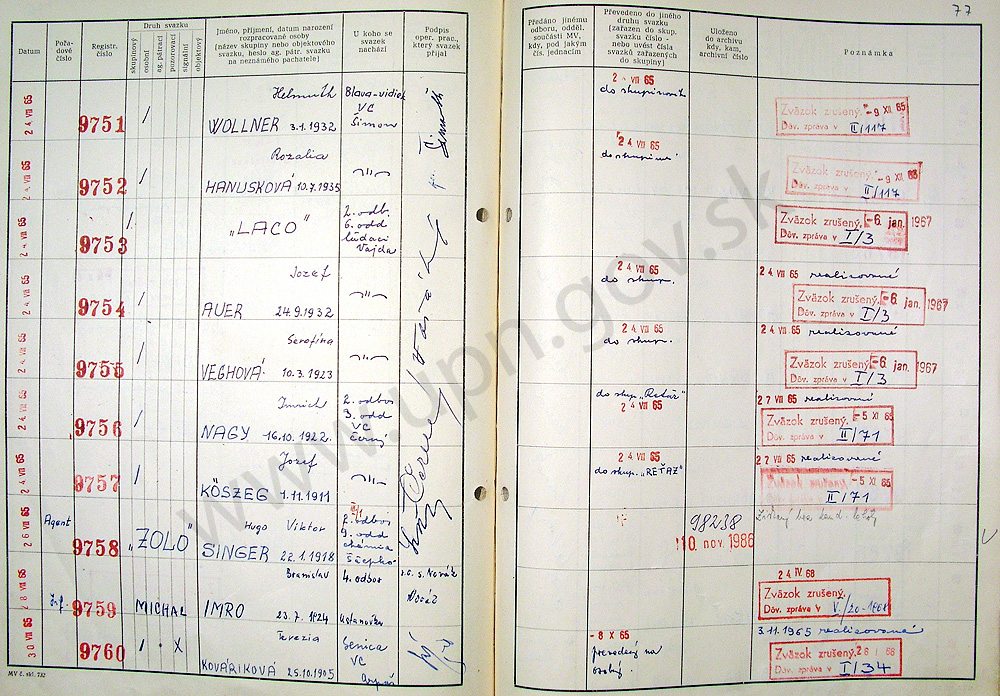 77
Datum
Pořa-
dové
číslo
Registr.
číslo
Druh svazku
skupinový
osobní
ag. pátrací
pozorovací
signální
objektový
Jméno, příjmení, datum narození
rozpracované osoby
(název skupiny nebo objektového
svazku, heslo ag. pátr. svazku
na neznámého pachatele)
U koho se
svazek
nachází
Podpis
oper. prac.,
který svazek
přijal
Předáno jinému
odboru, odděl.
součásti MV,
kdy, pod jakým
čís. jednacím
Převedeno do jiného
druhu svazku
(zařazen do skup.
svazku číslo -
nebo uvést čísla
svazků zařazených
do skupiny)
Uloženo
do archivu
kdy, kam,
archivní číslo
Poznámka
24 VII 65
9751
/
Helmuth
WOLLNER 3.1.1932
VC
Šimon
2- VII 65
Zväzok zrušený -9 XII 65
Dôv. zpráva v II/117
24 VII 65
9752
/
Rozalia
HANUSKOVÁ 10.7.1935
-"-
24 VII 65
Zväzok zrušený -9 XII 65
Dôv. zpráva v II/117
24 VII 65
9753
/
„LACO"
2. odb.
6. odd
Vajda
Zväzok zrušený. -6 jan. 1967
Dôv. zpráva v I/3
24 VII 65
9754
/
Jozef
AUER 24.9.1932
-"-
24 VII 65
do skup.
24 VII 65 realizované
Zväzok zrušený. -6 jan. 1967
Dôv. zpráva v I/3
24 VII 65
9755
/
Serafína
VEGHOVÁ 10.3.1923
-"-
24 VII 65
do skup.
24 VII 65 realizované
Zväzok zrušený. -6 jan. 1967
Dôv. zpráva v I/3
24 VII 65
9756
/
Imrich
NAGY 16.10.1922
2. odbor
3. odd
VC
Černý
do skup. „Reťaz"
24 VII 65
27 VII 65 realizované
Zväzok zrušený. -5 XI 65
Dôv. zpráva v II/71
24 VII 65
9757
/
Jozef
KÖSZEG 1.11.1911
-"-
24 VII 65
do skup. „REŤAZ"
27 VII 65 realizované
Zväzok zrušený -5 XI 65
Dôv. zpráva v II/71
26 VII 65
Agent
9758
„ZOLO"
Hugo Viktor
SINGER 22.1.1918
2. odbor
9. odd
chémia
98238
10. nov. 1986
28 VII 65
9759
MICHAL
Branislav
IMRO 23.7.1924
4. odbor
24 IV. 68
Zväzok zrušený.
Dôv. zpráva v
30 VII 65
9760
/ • X
Terezia
KOVÁRIKOVÁ 25.10.1905
Senica
VC
-8 X 65
prevedený na
3.11.1965 realizované
Zväzok zrušený.
Dôv. zpráva v I/34
MV č. skl. 732
www.upn.gov.sk